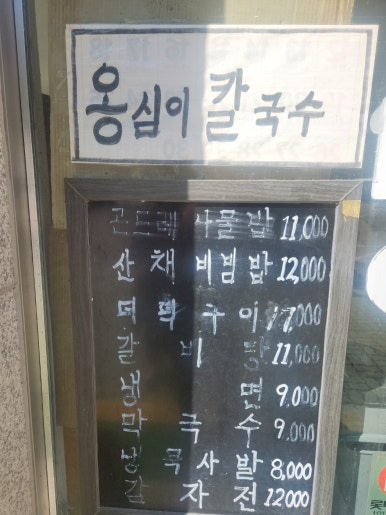 옹심이 칼국수
곤드레 나물밥 11,000
산채비빔밥 12,000
더덕구이 17,000
갈비탕 11,000
냉면 9,000
막국수 9,000
냉묵사발 8,000
감자전 12000